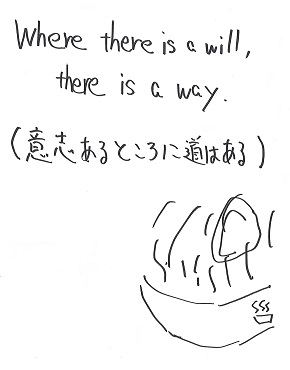 Where there is a will,
there is a way.
(意志あるところに道はある)